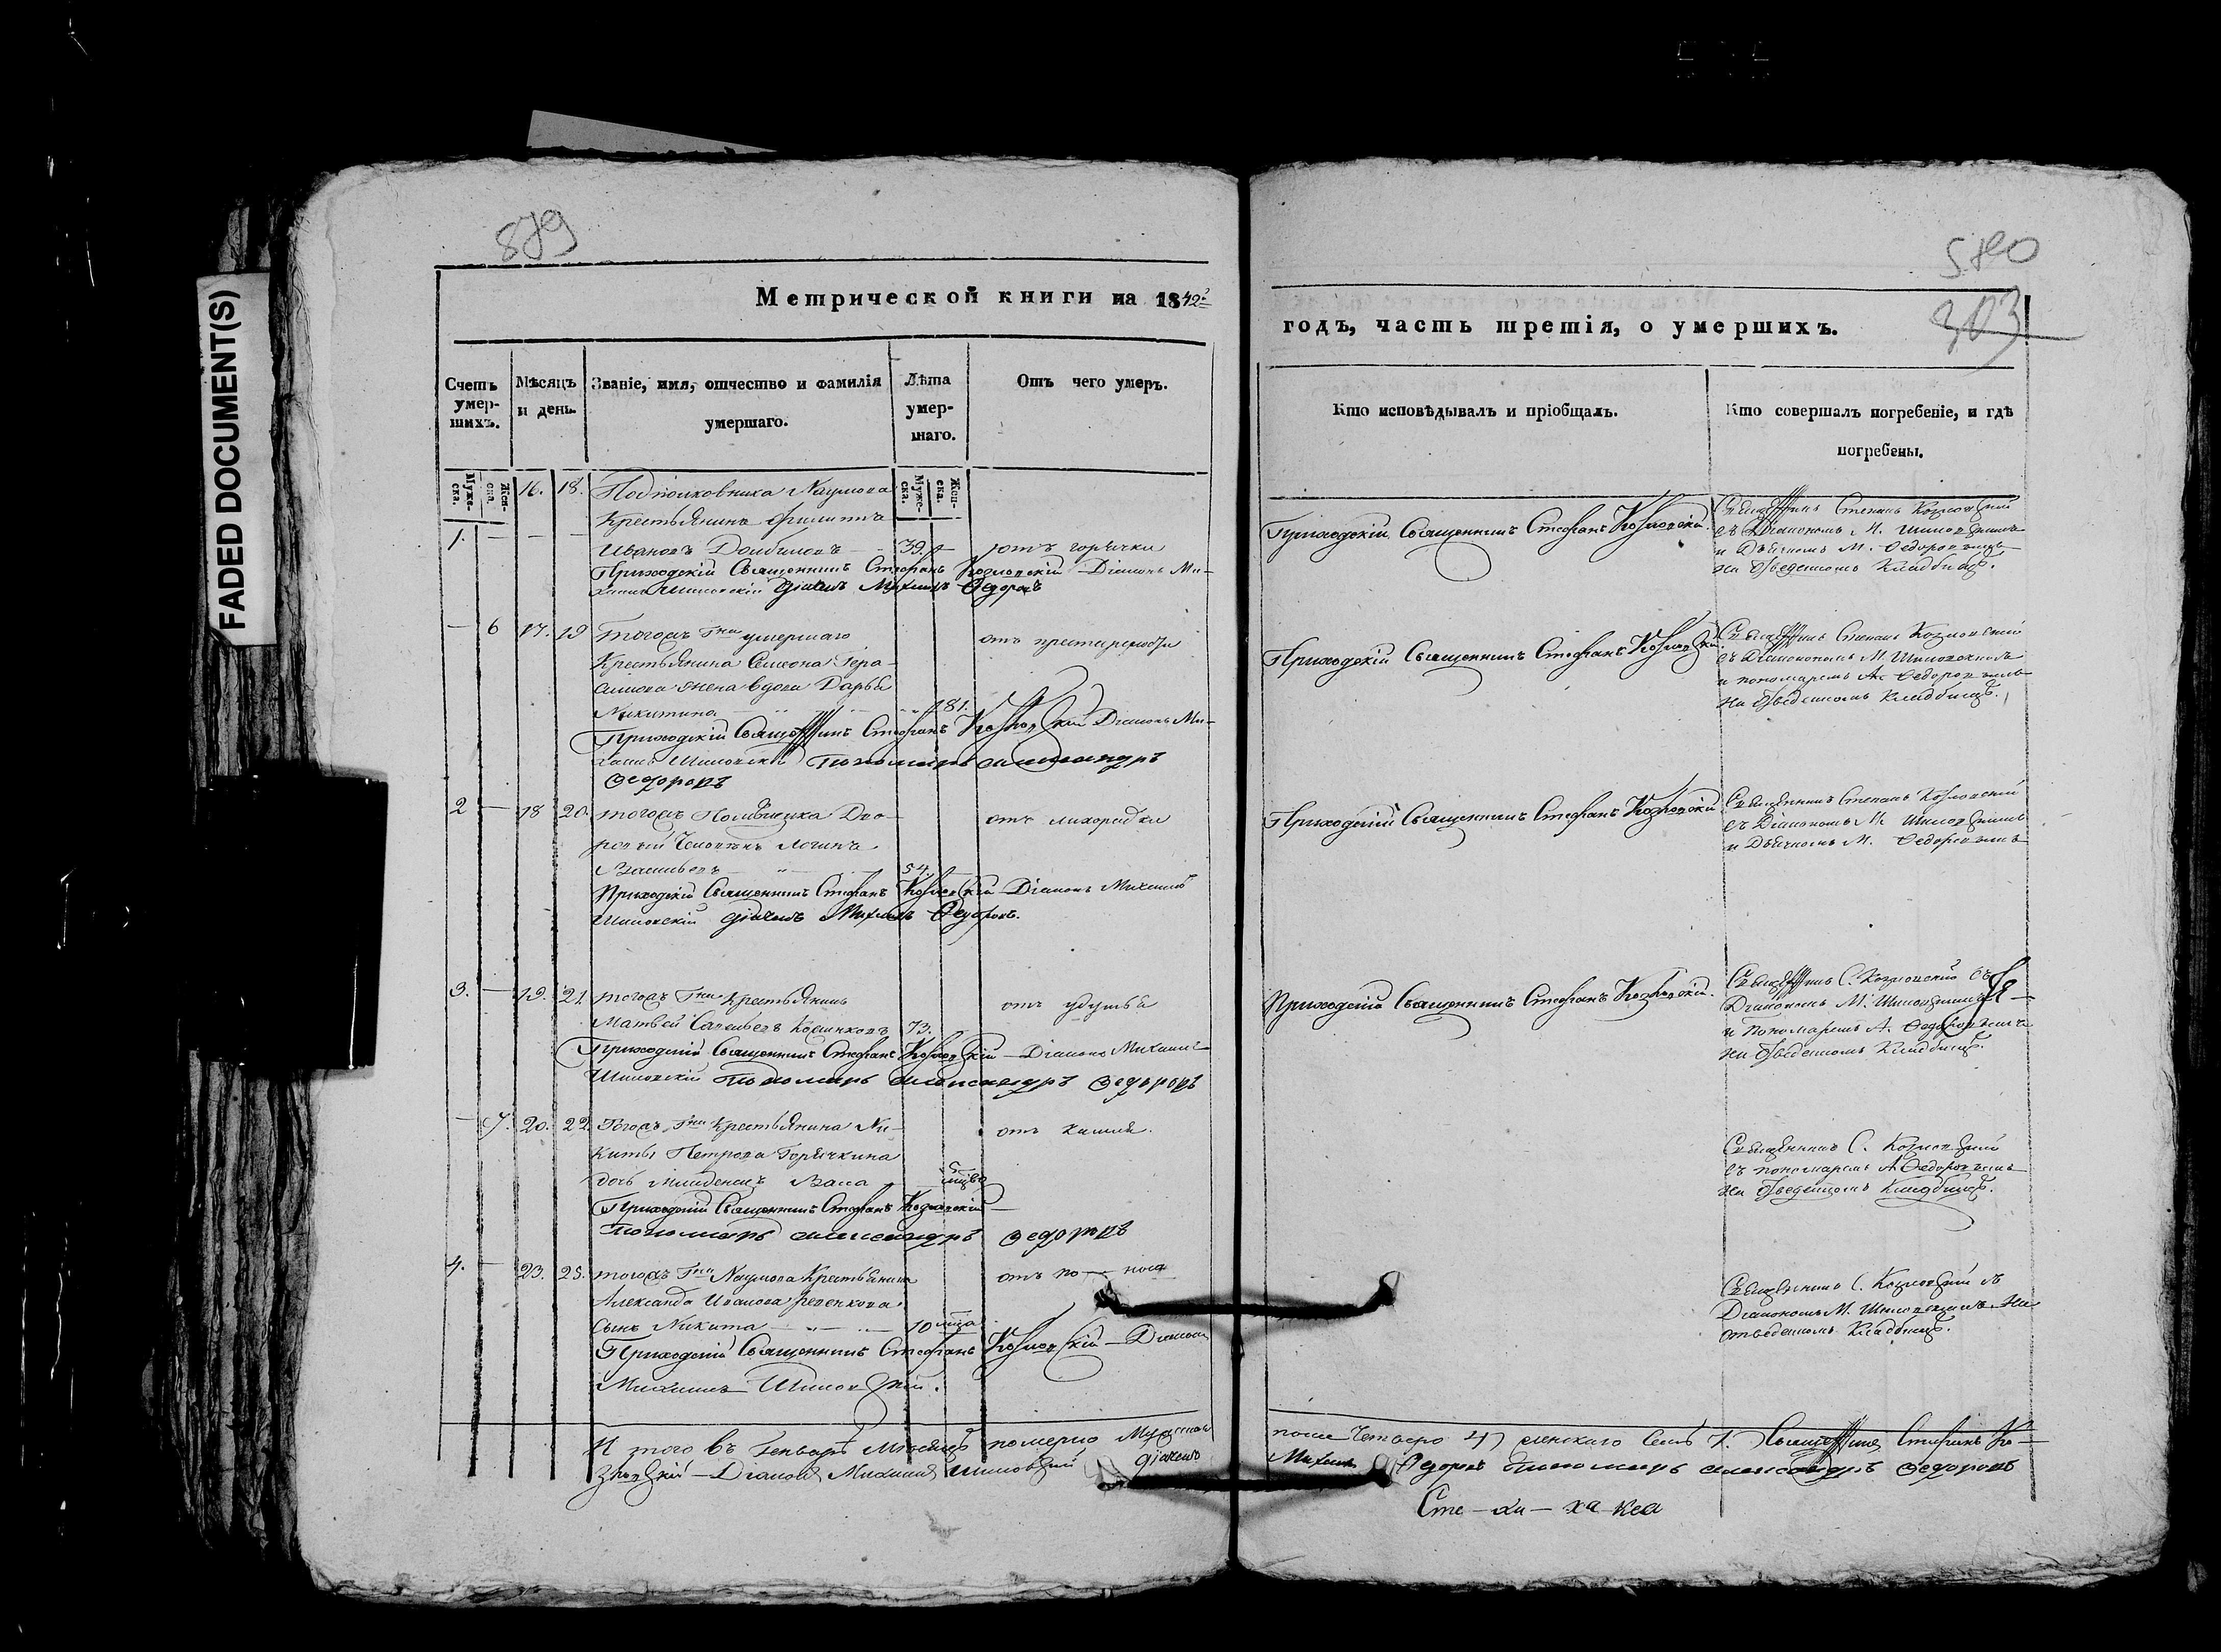 FADED DOCUMENT(S)
879
Метрической книги на 1842г
Счетъ умер-шихъ.
Мѣсяцъ и день.
Званіе, имя, отчество и фамилія умершаго.
Лѣта умер-шаго.
Отъ чего умеръ.
Муже-ска.
Жен-ска.
Муже-ска.
Жен-ска.
16. 18. Подполковника Наумова
Крестьянинъ Филиппъ
1. Ивановъ 39. отъ горячки
Приходскій Священникъ Стефанъ Козловскій Діаконъ Ми-
хаилъ Шиловскій Дьячекъ Михаилъ Федоровъ
6 17. 19 тогожъ Гна умершаго отъ престарелости
Крестьянина Симеона Гера-
симова жена вдова Дарья
Никитина 81.
Приходскій Священникъ Стефанъ Козловскій Діаконъ Ми-
хаилъ Шиловскій Пономарь Александръ
Федоровъ
2 18 20. тогожъ Помѣщика Дво- отъ лихорадки
ровый Человѣкъ Логинъ
Васильевъ 54.
Приходскій Священникъ Стефанъ Козловскій Діаконъ Михаилъ
Шиловскій Дьячекъ Михаилъ Федоровъ.
3. 19. 21. тогожъ Гна Крестьянинъ отъ удушья
Матвей Савельевъ 73.
Приходскій Священникъ Стефанъ Козловскій Діаконъ Михаилъ
Шиловскій Пономарь Александръ Федоровъ
7. 20. 22. Тогожъ Гна Крестьянина Ни- отъ кашля.
киты Петрова Горячкина
дочь младенецъ Васса 5
Приходскій Священникъ Стефанъ Козловскій
Пономарь Александръ Федоровъ
4. 23. 25. тогожъ Гна Наумова Крестьянина отъ по-носа
Александа Иванова
сынъ Никита 10
Приходскій Священникъ Стефанъ Козловскій Діаконъ
Михаилъ Шиловскій.
И того въ Генварѣ Мѣсяцѣ померло Мужска
Козловскій Діаконъ Михаилъ Шиловскій Дьячекъ
580
303
годъ, часть третія, о умершихъ.
Кто исповѣдывалъ и пріобщалъ.
Кто совершалъ погребеніе, и гдѣ погребены.
Приходскій Священникъ Стефанъ Козловскій.
Священникъ Степанъ Козловскій
съ Діакономъ М. Шиловскимъ
и Дьячкомъ М. Федоровымъ
на Отведенномъ Кладбищѣ.
Приходскій Священникъ Стефанъ Козловскій.
Священникъ Степанъ Козловскій
съ Діакономъ М. Шиловскимъ
и пономаремъ Ал. Федоровымъ
на Отведенномъ Кладбищѣ.
Приходскій Священникъ Стефанъ Козловскій
Священникъ Степанъ Козловскій
съ Діакономъ М. Шиловскимъ
и Дьячкомъ М. Федоровымъ
Приходскій Священникъ Стефанъ Козловскій.
Священникъ С. Козловскій съ
Діакономъ М. Шиловскимъ
и Пономаремъ А. Федоровымъ
на Отведенномъ Кладбищѣ.
Священникъ С. Козловскій
съ пономаремъ А Федоровымъ
на Отведенномъ Кладбищѣ.
Священникъ С. Козловскій съ
Діакономъ М. Шиловскимъ На
отведенномъ Кладбищѣ.
пола Четверо 4) женскаго Семь 7. Священникъ Стефанъ Ко-
Михаилъ Федоровъ Пономарь Александръ Федоровъ